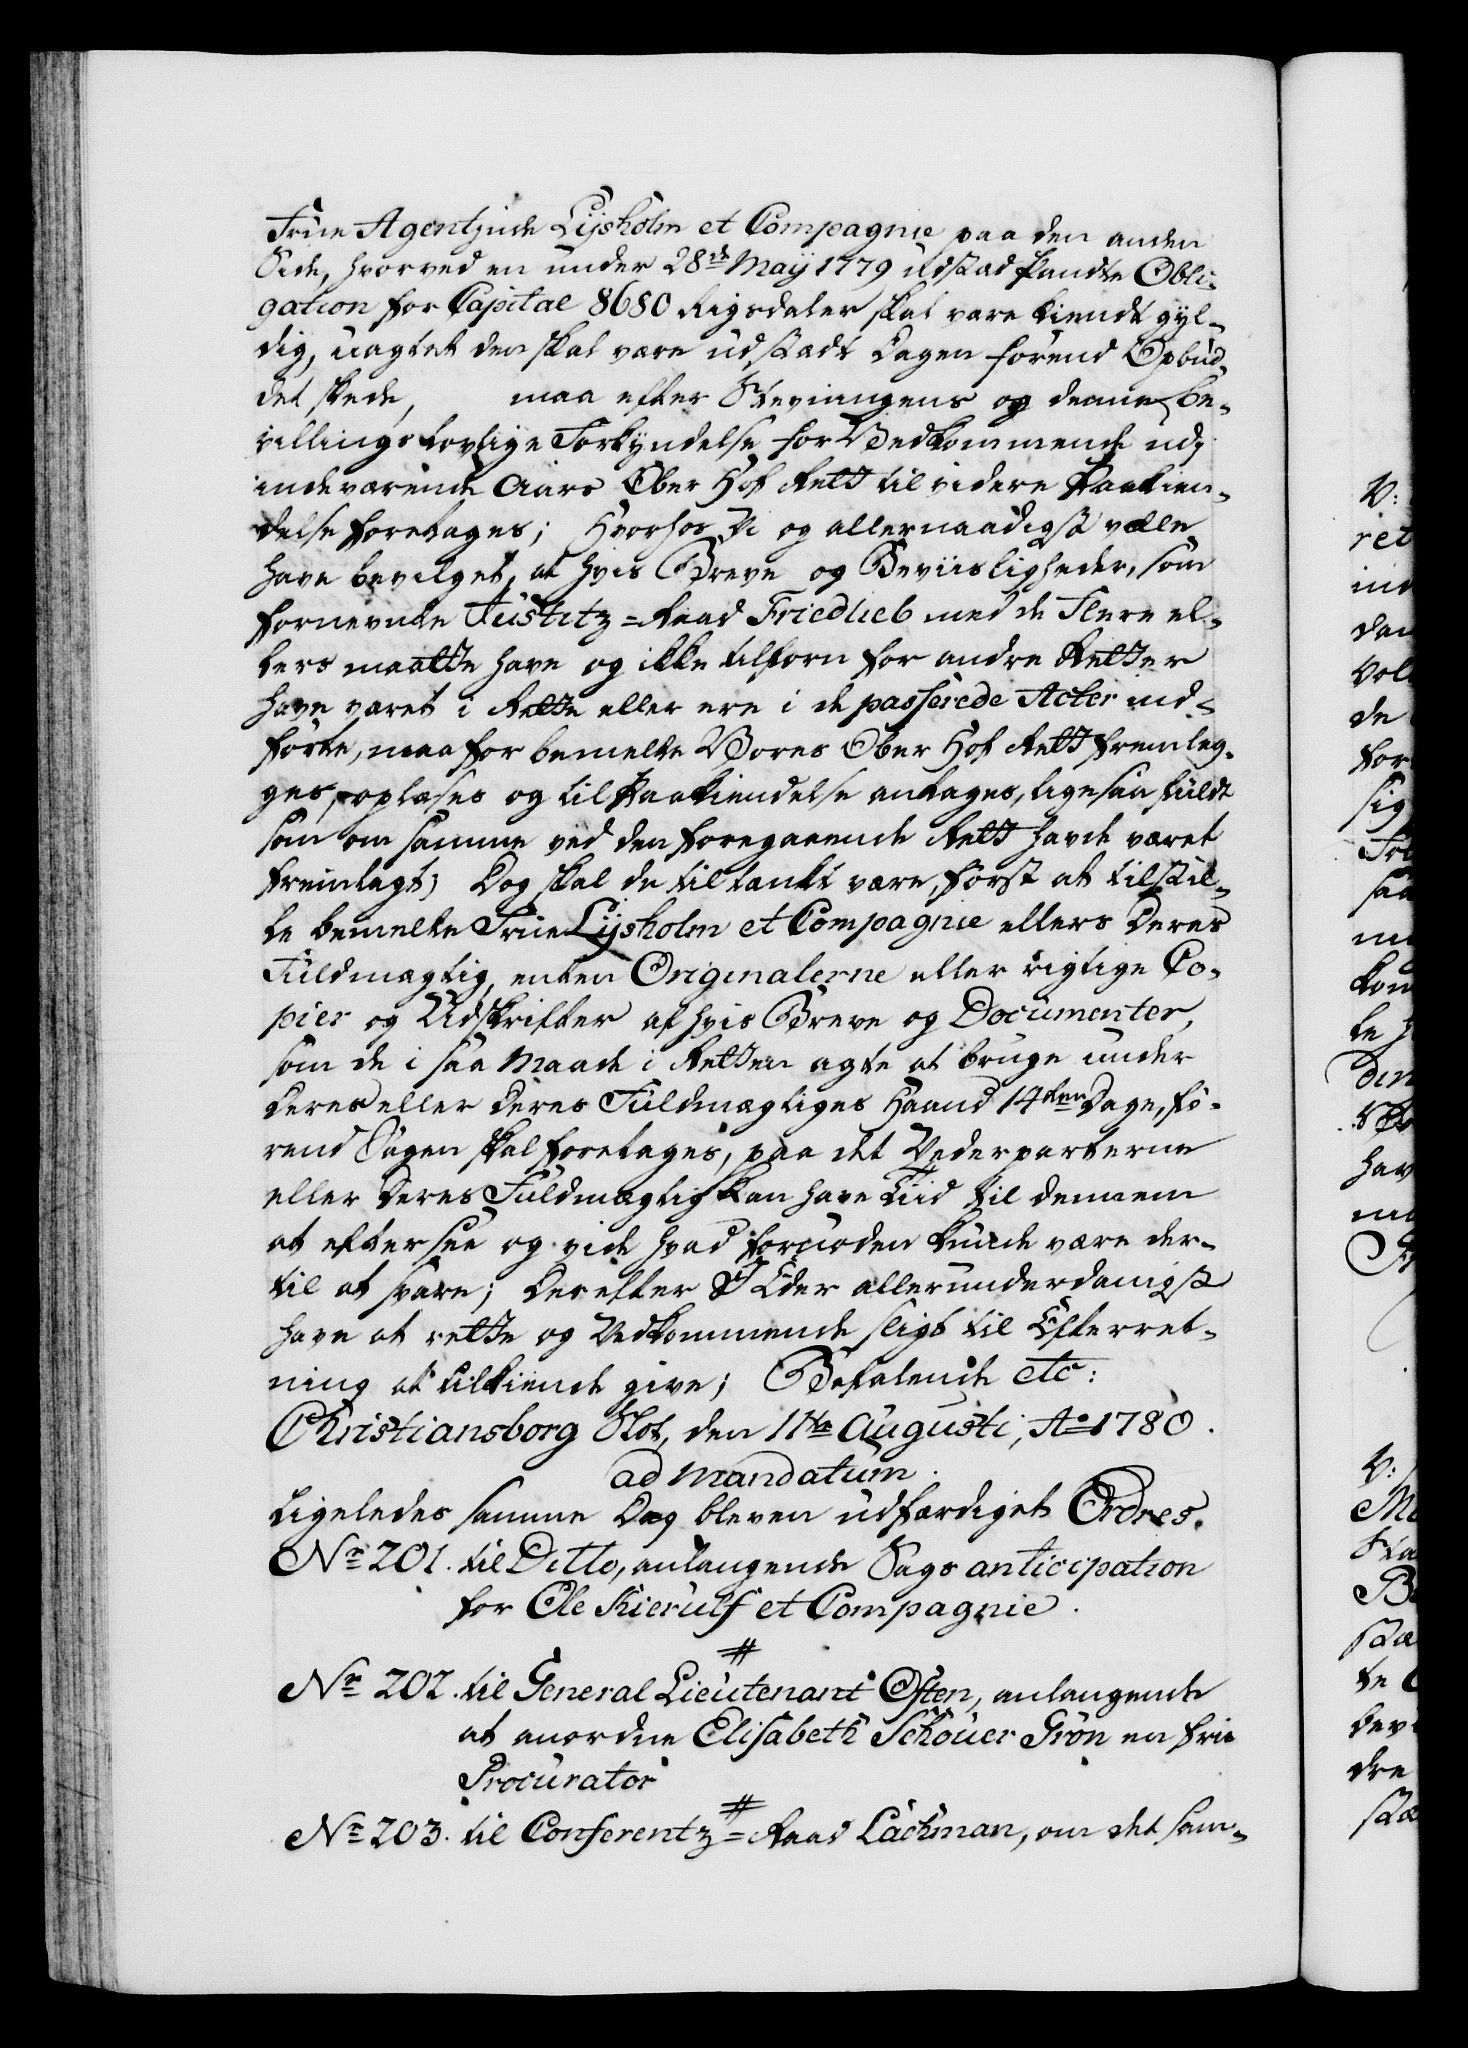 Frue Agentinde Lysholm et Compagnie paa den anden
Side, hvorved en under 28de Maij 1779 udstæd Pandte Obli-
gation for Capital 8680 Rigsdaler skal være kiendt gyl-
dig, uagtet den skal være udstædt Dagen førend Opbud-
det skede, maa efter Stevningens og denne Be-
villings lovlige Forkyndelse for Vedkommende udj
indeværende Aars Ober Hof Rett til videre Paakien-
delse foretages; Hvorhos Vi og allernaadigst ville
have bevilget, at hvis Breve og Beviisligheder, som
fornevnte Justitz-Raad Friedlieb med de Flere el-
lers maatte have og ikke tilforn for andre Retter
have været i Rette eller ere i de passerede Acter ind-
førte, maa for bemelte Vores Ober Hof Rett fremleg-
ges, oplæses og til Paakiendelse antages, ligesaa fuldt
som om samme ved den foregaaende Rett havde været
fremlagt; Dog skal de til tænkt være, først at tilstil-
le bemelte Frue Lysholm et Compagnie ellers Deres
Fuldmægtig, enten Originalerne eller rigtige Co-
pier og Udskrifter af hvis Breve og Documenter,
som de i saa Maade i Retten agte at bruge under
Deres eller Deres Fuldmægtiges Haand 14ten Dage, fø-
rend Sagen skal foretages, paa det Vederparterne
eller Deres Fuldmægtig kan have Tiid til dennem
at eftersee og vide hvad fornøden kunde være der-
til at svare; Derefter I Eder allerunderdanigst
have at rette og Vedkommende sligt til Efterret-
ning at tilkiende give; Befalende etc:
Christiansborg Slot, den 11te Augusti, Ao 1780.
ad mandatum.
Ligeledes samme Dag bleven udfærdiget Ordres.
Nr 201. til Ditto, anlangende Sags anticipation
for Ole Kierulf et Compagnie.
#
Nr 202. til General Lieutenant Osten, anlangende
at anordne Elisabeth Schöuer Grön en frie
Procurator
#
Nr 203. til Conferentz-Raad Lachman, om det sam-